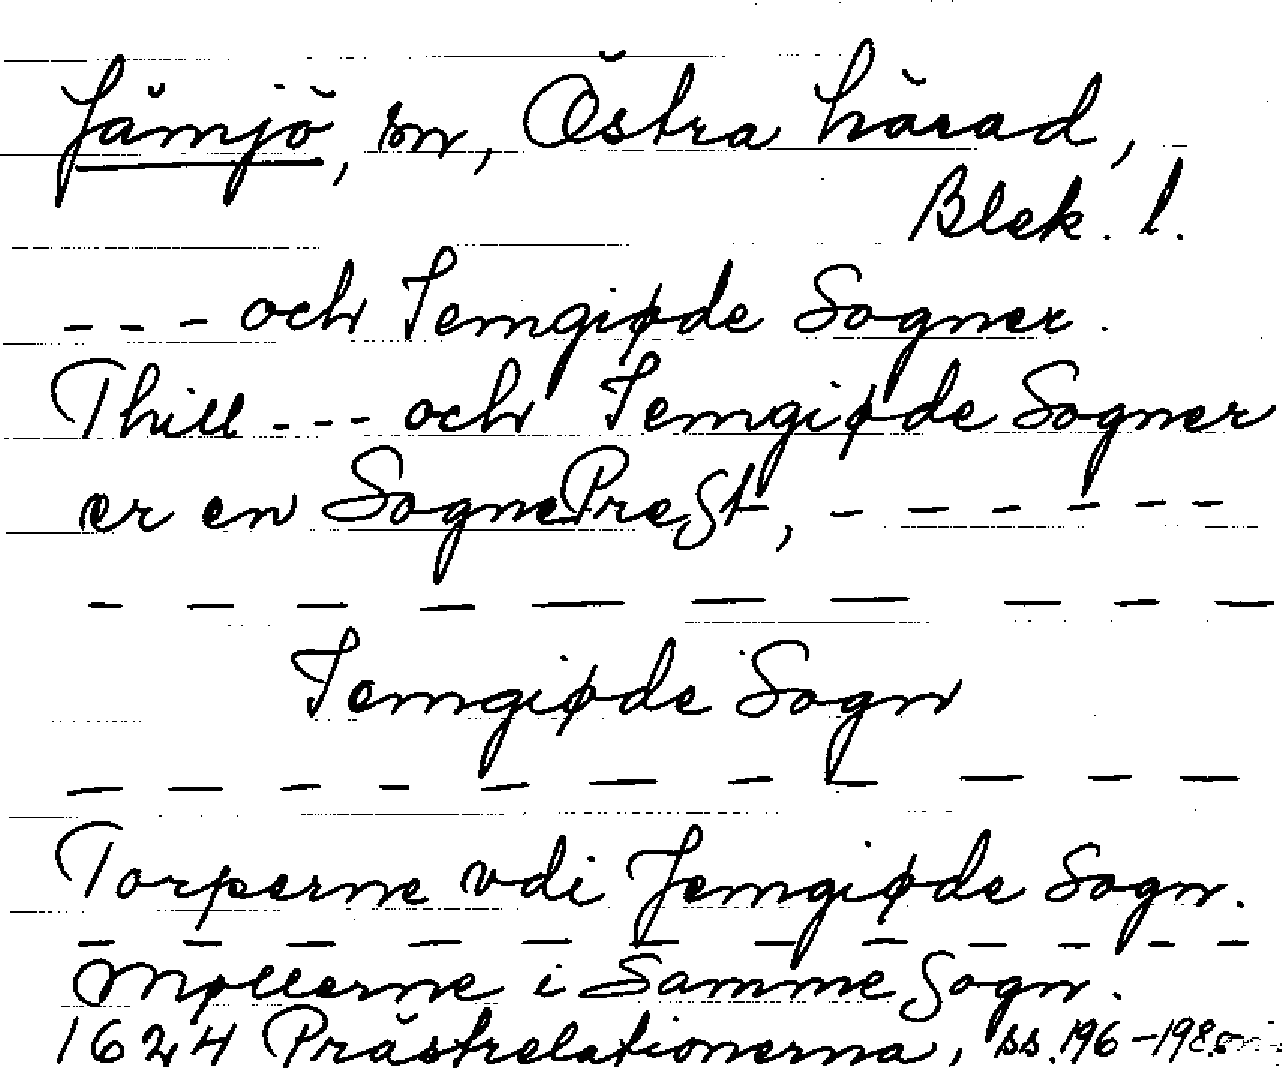 Jämjö, sn, Östra härad,
Blek. l.
--- och Iemgiøde Sogner.
Thill --- och Iemgiøde Sogner
er en SognePreSt, - - - - - - -
- - - - - - - - - -
Iemgiøde Sogn
- - - - - - - - - - -
Torperne vdi Jemgiøde Sogn.
- - - - - - - - - - - -
Møllerne i Samme Sogn.
1624 Prästrelationerna, ss. 196-198